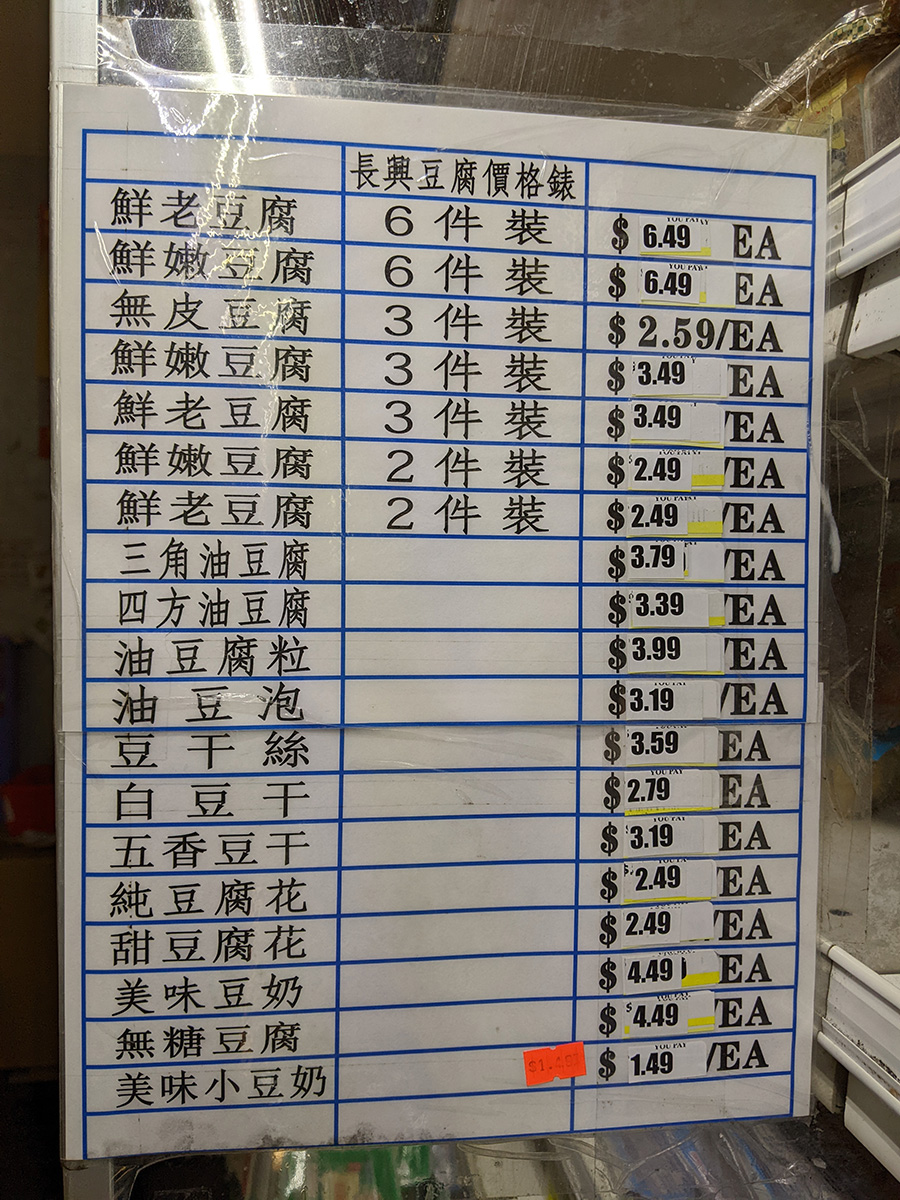 長興豆腐價格錶
鮮老豆腐 6件裝 $ 6.49 EA
鮮嫩豆腐 6件裝 $ 6.49 EA
無皮豆腐 3件裝 $ 2.59/EA
鮮嫩豆腐 3件裝 $ 3.49 EA
鮮老豆腐 3件裝 $ 3.49 /EA
鮮嫩豆腐 2件裝 $ 2.49 /EA
鮮老豆腐 2件裝 $ 2.49 /EA
三角油豆腐 $ 3.79 /EA
四方油豆腐 $ 3.39 /EA
油豆腐粒 $ 3.99 /EA
油豆泡 $ 3.19 /EA
豆干絲 $ 3.59 EA
白豆干 YOU PAY $ 2.79 EA
五香豆干 YOU PAY $ 3.19 EA
純豆腐花 $ 2.49 /EA
甜豆腐花 $ 2.49 /EA
美味豆奶 $ 4.49 EA
無糖豆腐 $ $4.49 /EA
美味小豆奶 YOU PAY $ 1.49 /EA